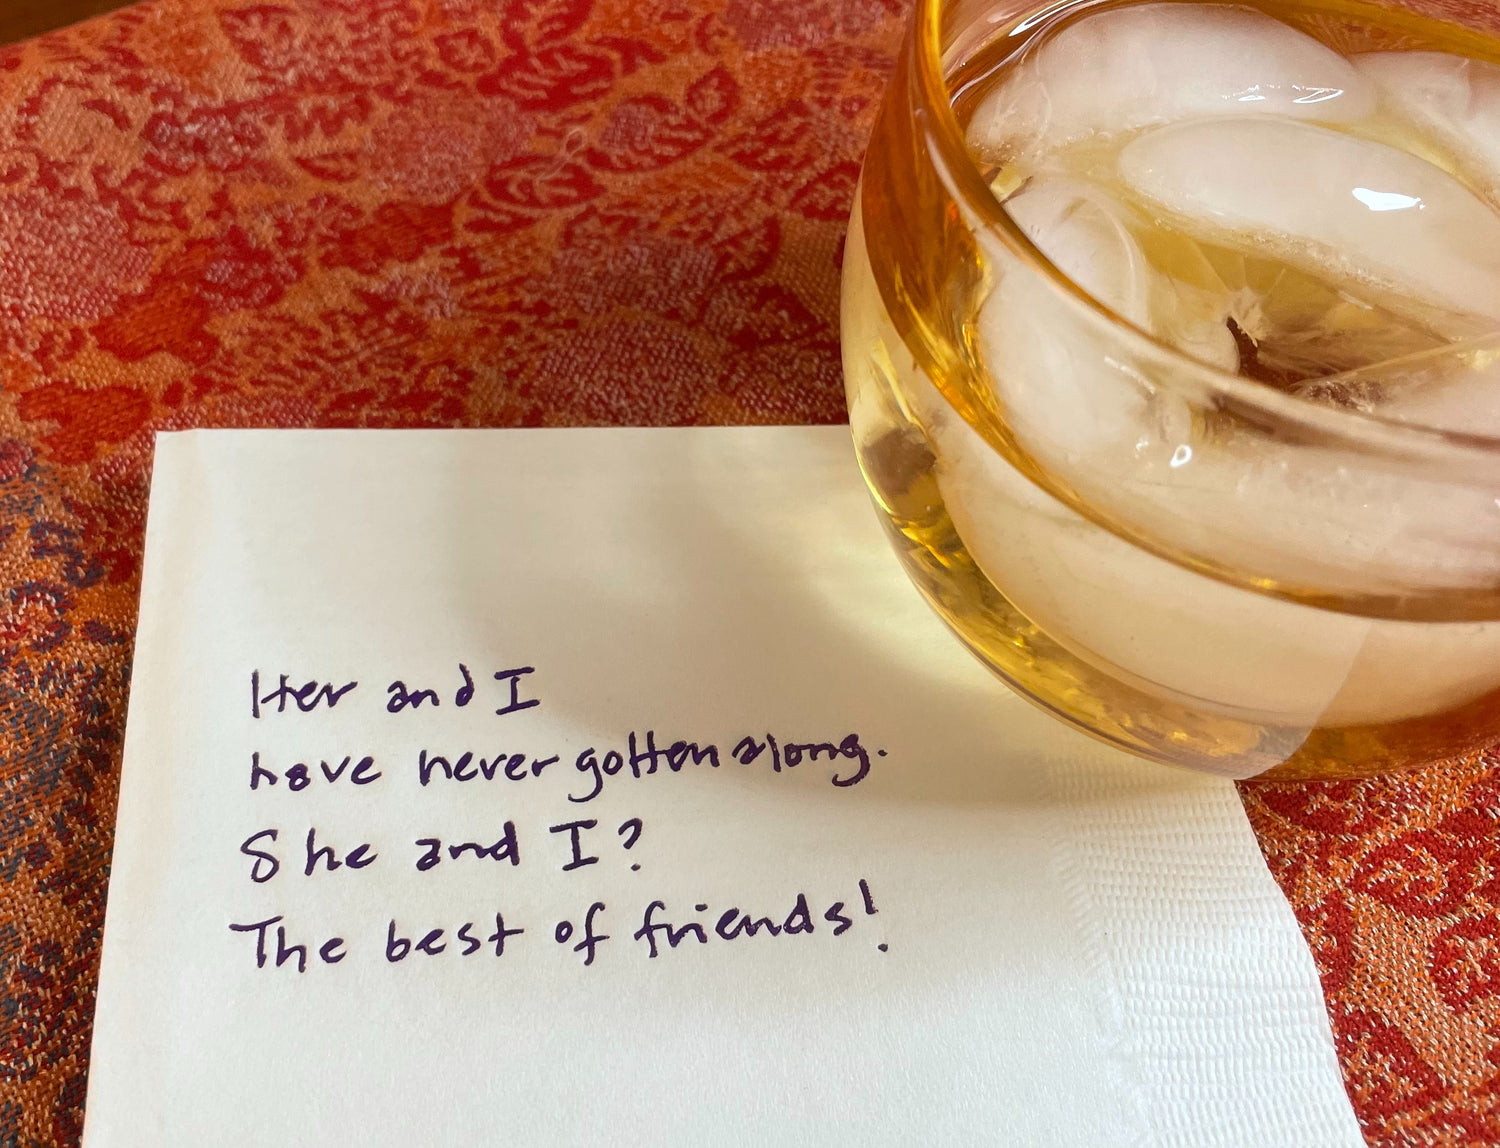 Her and I
have never gotten along.
She and I?
The best of friends!